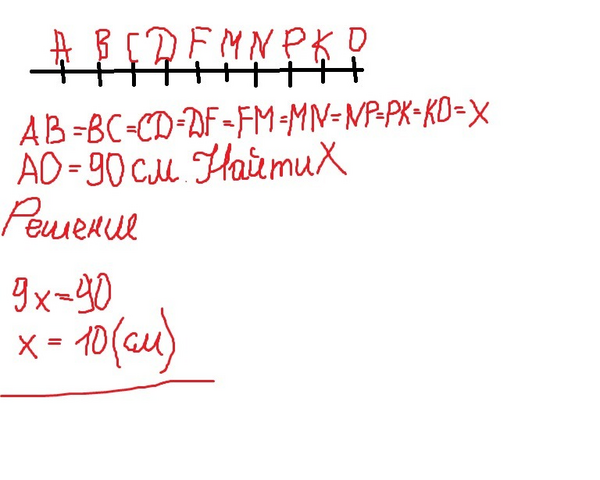 A B C D F M N P K O
AB=BC=CD=DF=FM=MN=NP=PK=KO=X
AO=90 см. Найти X
Решение
9x=90
x = 10(см)